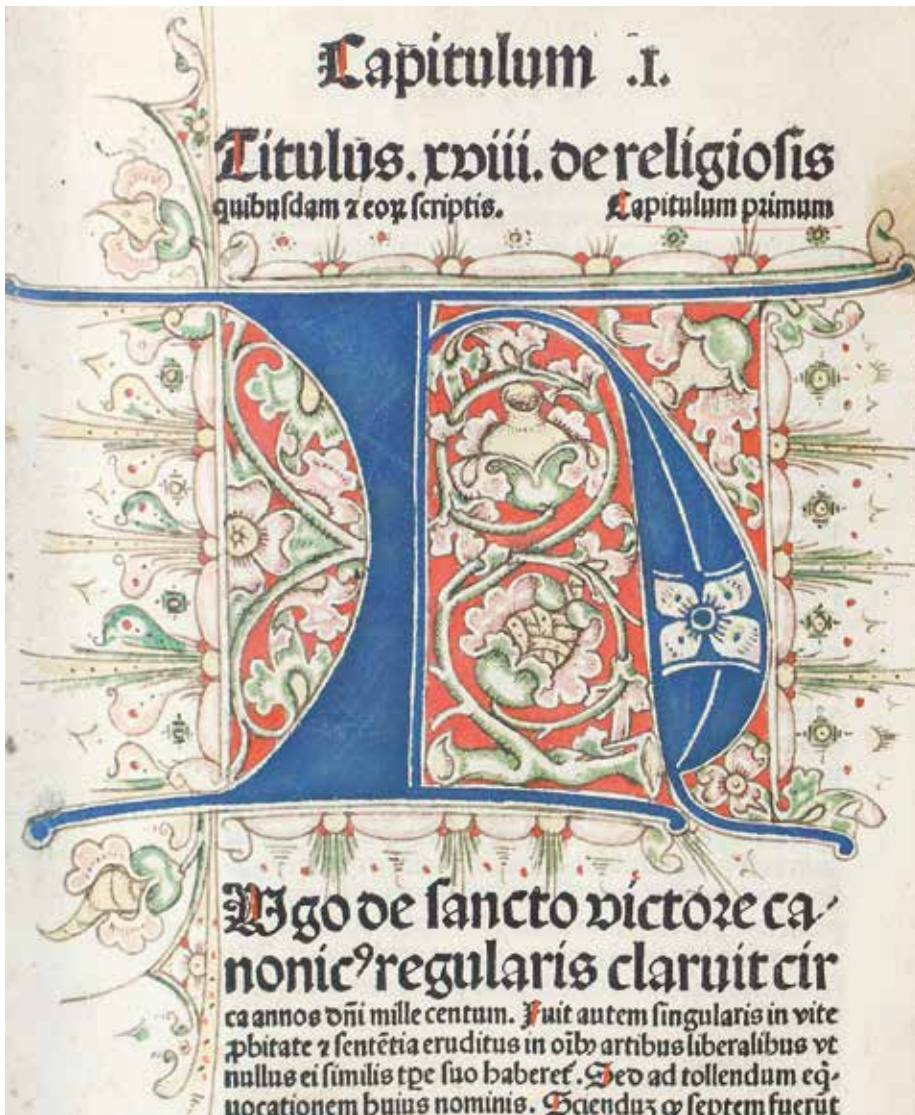 Capitulum .I.
Titulus. xviii. de religiosis
quibusdam ⁊ eoꝝ scriptis. Capitulum primum
H
Ugo de sancto victore ca/
nonicꝰ regularis claruit cir
ca annos dñi mille centum. Fuit autem singularis in vite
ꝓbitate ⁊ sentētia eruditus in oĩbꝰ artibus liberalibus vt
nullus ei similis tꝑe suo haberet᷑. Sed ad tollendum eq̃-
uocationem huius nominis. Scienduꝫ ꝙ septem fuerūt